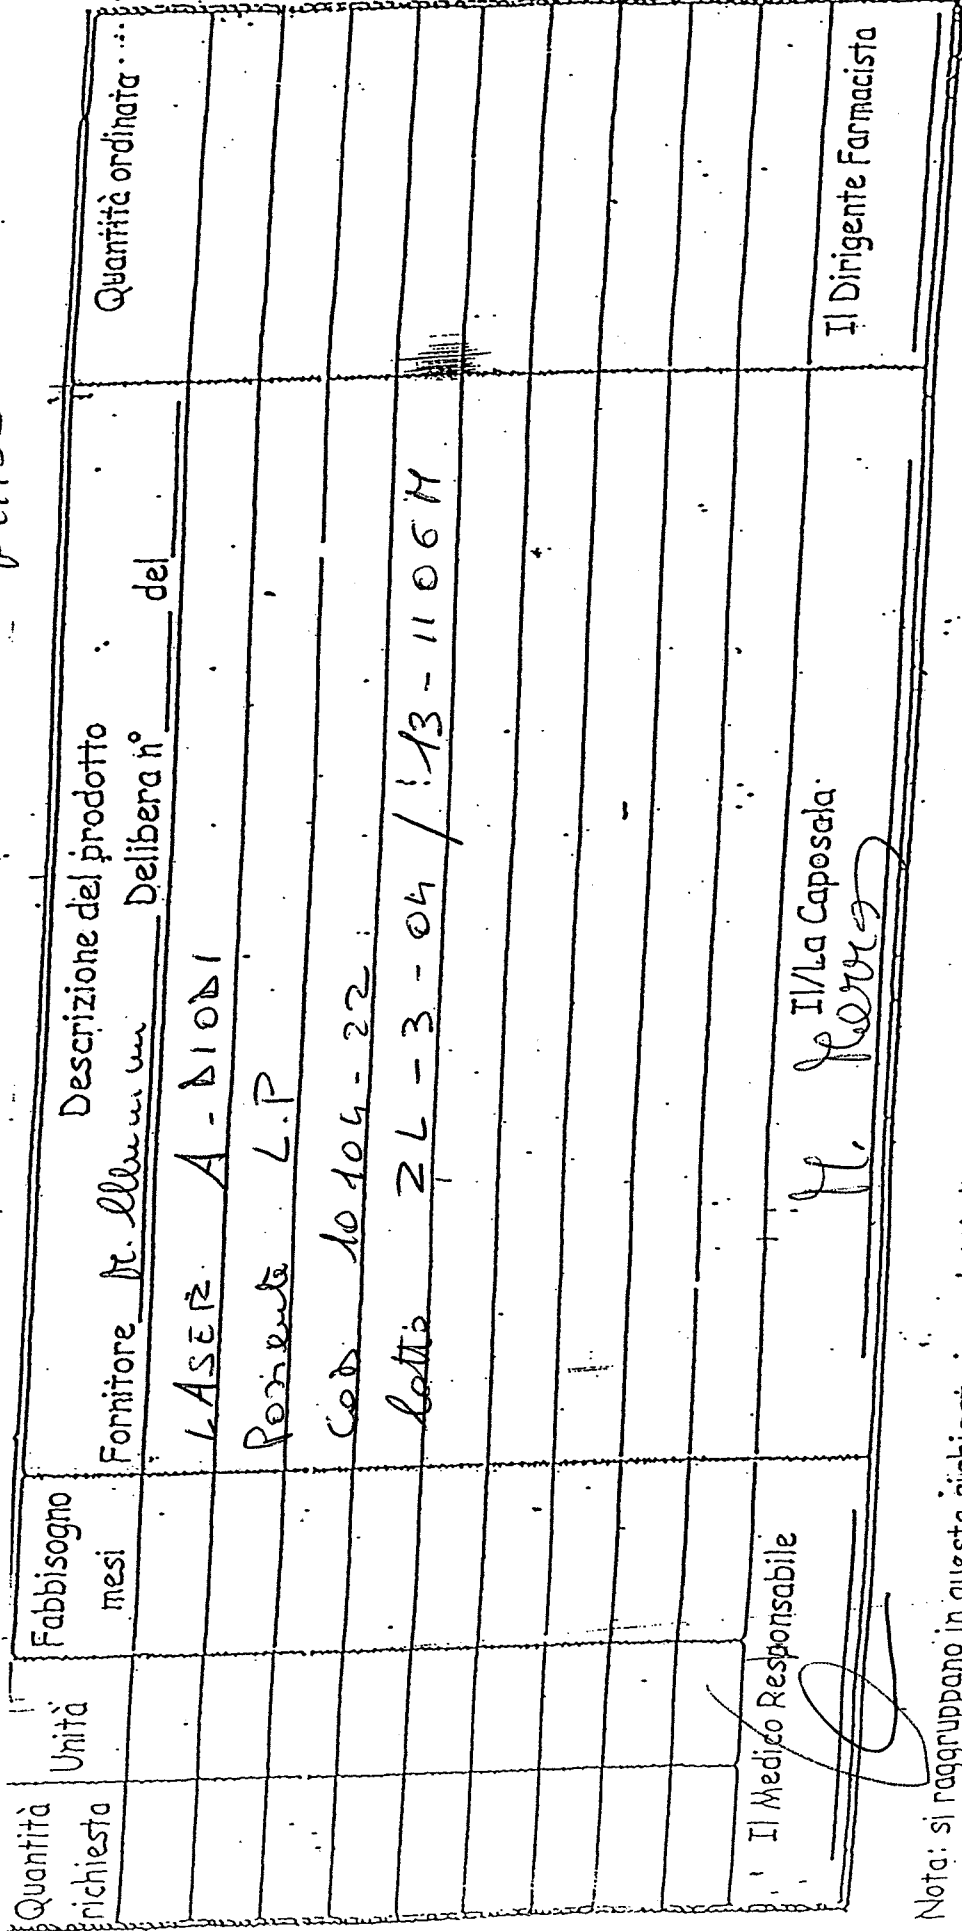 Quantità richiesta
Unità
Fabbisogno mesi
Descrizione del prodotto
Quantità ordinata
Fornitore Delibera n° del
LASER A - DIODI
Paziente L.P
COD 10104-22
Lotto 2L - 3 - 04 / 13 - 1106M
Il Medico Responsabile
Il/La Caposala
M.
Il Dirigente Farmacista
Nota: si raggruppano in questa